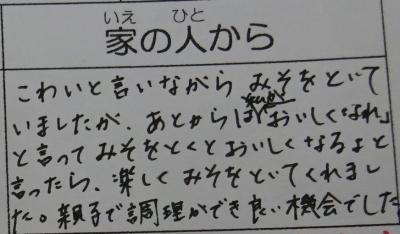 いえ ひと
家の人から
こわいと言いながら みそをといて
いましたが、あとから私が「おいしくなれ」
と言ってみそをとくとおいしくなるよと
言ったら、楽しくみそをといてくれまし
た。親子で調理ができ良い機会でした